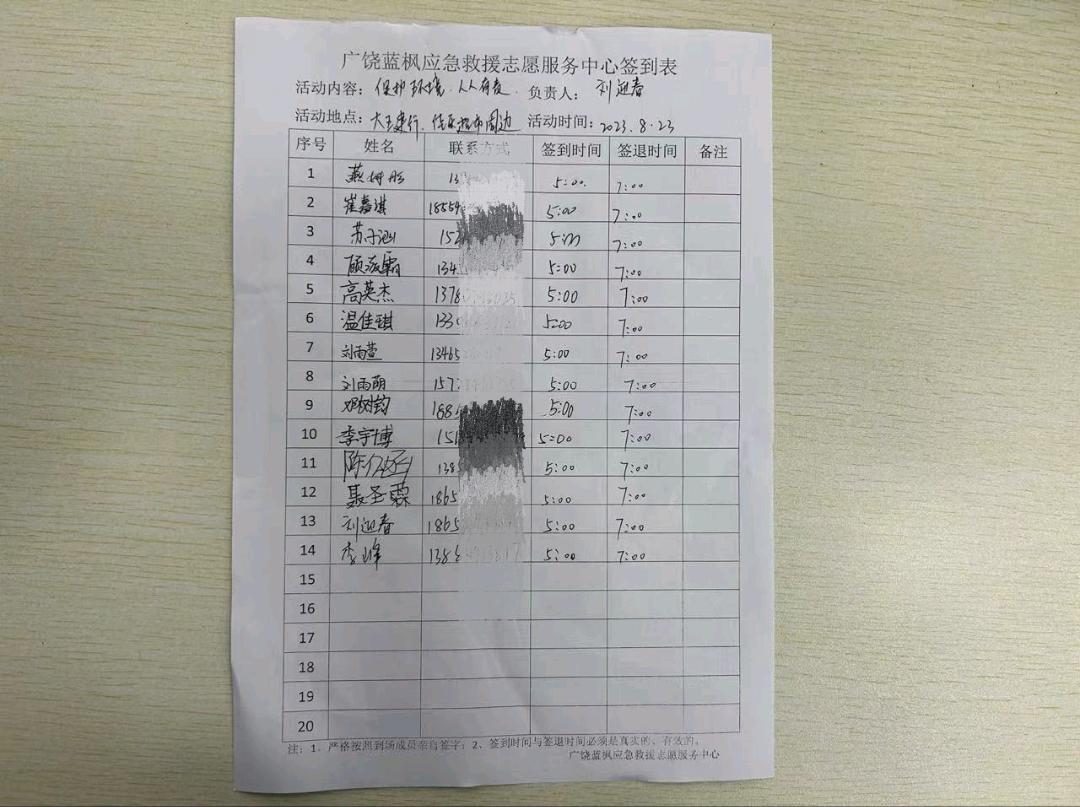 广饶蓝枫应急救援志愿服务中心签到表
活动内容：保护环境.人人有责. 负责人：刘迎春
活动地点：大王建行、佳乐超市周边 活动时间：2023.8.23
序号 姓名 联系方式 签到时间 签退时间 备注
1 13 5:00 7:00
2 崔嘉淇 18554 5:00 7:00
3 苏子涵 152 5:00 7:00
4 134 5:00 7:00
5 高英杰 1378 5:00 7:00
6 温佳琪 133 5:00 7:00
7 刘雨萱 13465 5:00 7:00
8 刘雨萌 157 5:00 7:00
9 邓树钧 188 5:00 7:00
10 李宇博 151 5:00 7:00
11 138 5:00 7:00
12 聂圣霖 1865 5:00 7:00
13 刘迎春 1865 5:00 7:00
14 李峰 138 5:00 7:00
15
16
17
18
19
20
注：1、严格按照到场成员亲自签字；2、签到时间与签退时间必须是真实的、有效的。
广饶蓝枫应急救援志愿服务中心